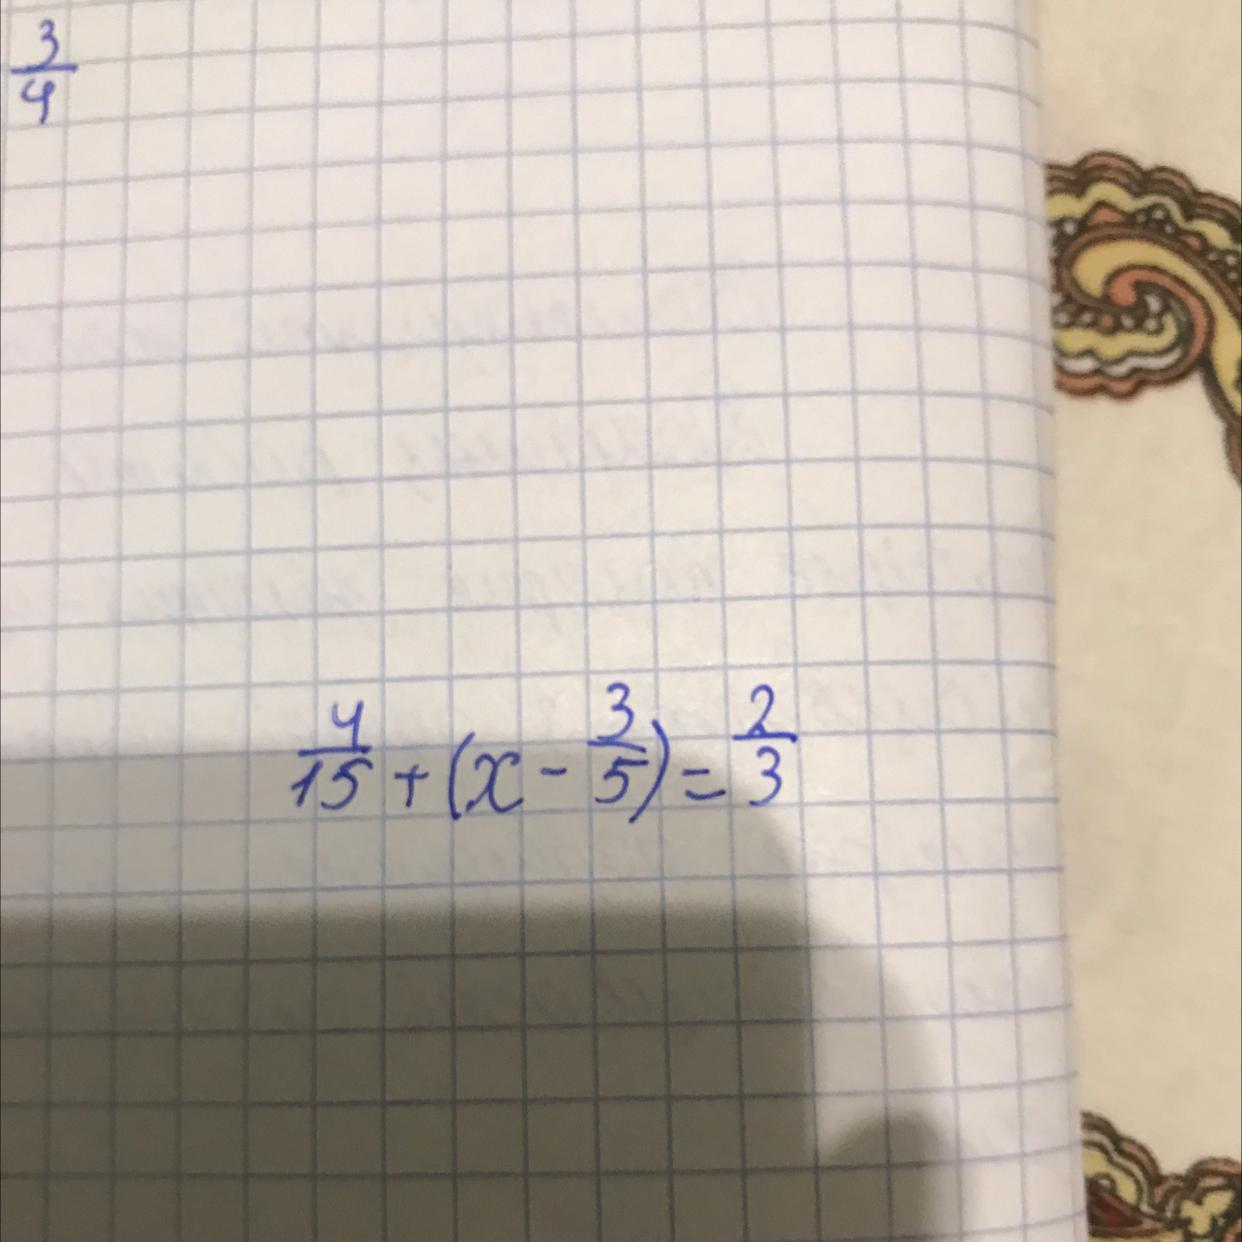 3/4
4/15 + (x - 3/5) = 2/3